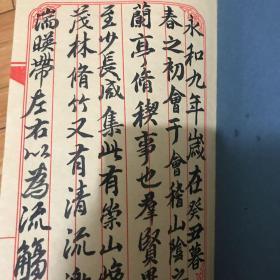 永和九年歲在癸丑暮
春之初會于會稽山陰
蘭亭脩禊事也羣賢畢
至少長咸集此有崇山峻
茂林脩竹又有清流激
湍暎帶左右以為流觴